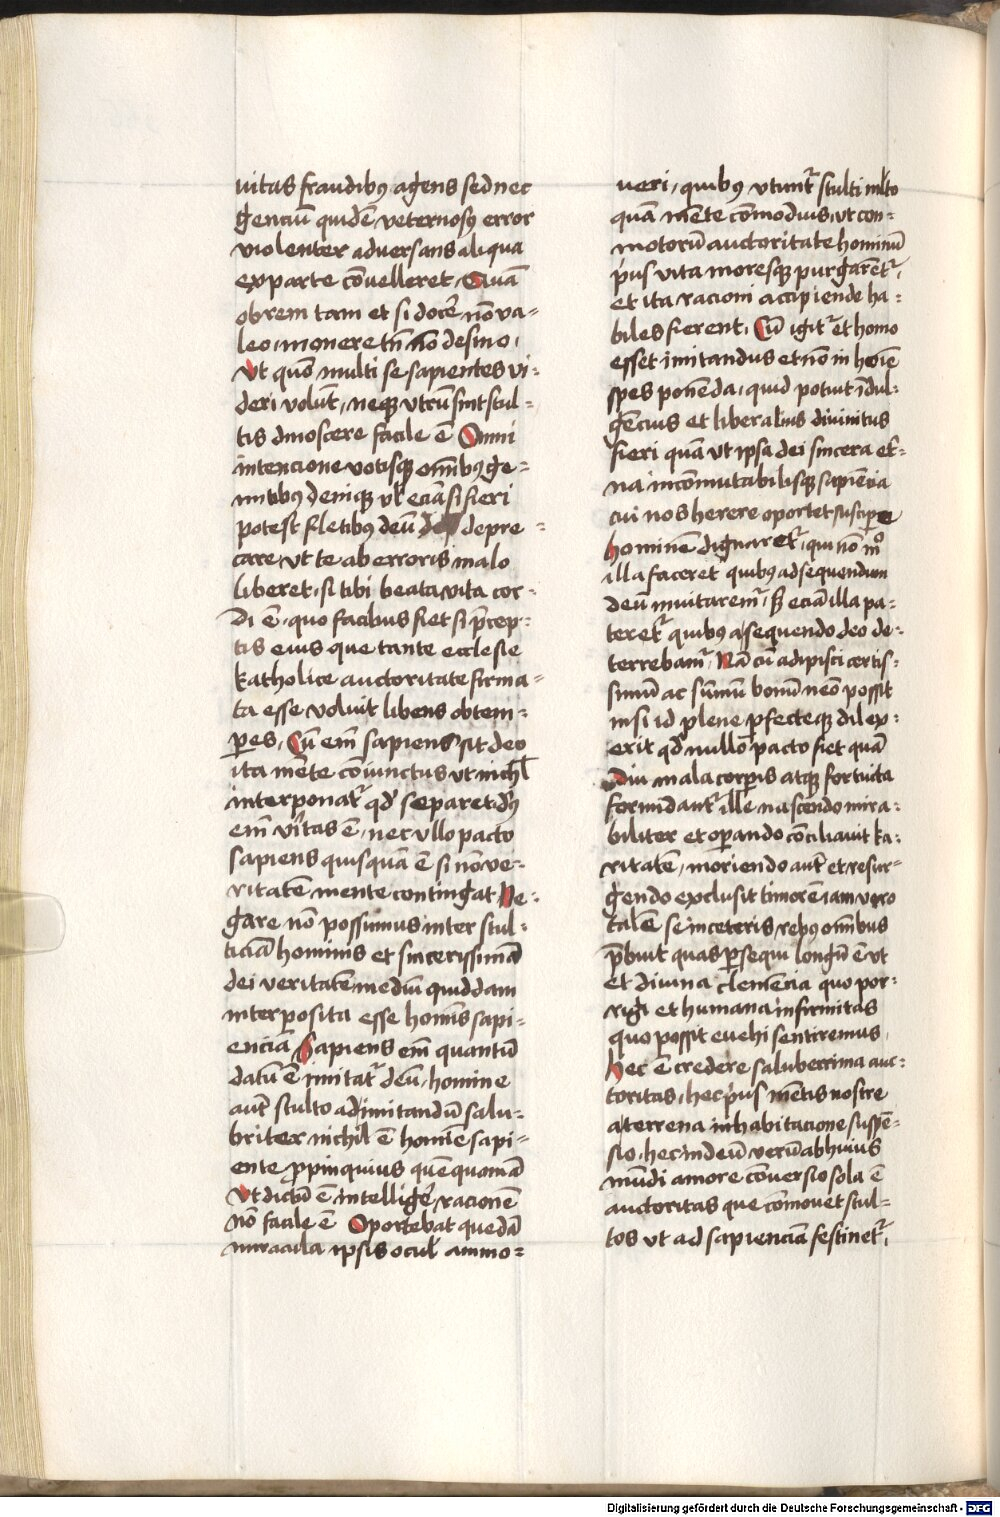 uitas fraudibꝰ agens sed nec
genciū quidē veternosꝰ error
violenter aduersans aliqua
ex parte cōvelleret Quā
obrem tam et si docē nō va=
leo, monere tn̄ nō desino,
Vt quō multi se sapientes vi=
deri volūt, neqꝫ vtrū sint stul=
tis dinoscere facile ē Omni
intencione votisqꝫ om̄ibꝰ ge=
mitibꝰ deniqꝫ vl̓ eciā si fieri
potest fletibꝰ deū depre=
care vt te ab erroris malo
liberet, si tibi beata vita cor=
di ē, quo facilius fiet si p̄cep=
tis eius que tante ecclesie
katholice auctoritate firma=
ta esse voluit libens obtem=
peres, Cū em̄ sapiens sit deo
ita mēte cōiunctus vt nichil
interponatᷣ qd̓ separet dꝰ
em̄ v̓itas ē, nec ullo pacto
sapiens quisquā ē si nō ve=
ritatē mente contingat Ne=
gare nō possumus inter stul=
ticiā hominis et sincerissimā
dei veritatē mediū quiddam
interposita esse homīs sapi=
enciā Sapiens em̄ quantū
datū ē imitatᷣ deū, homine
aut̄ stulto ad imitandū salu=
briter nichil ē homīe sapi=
ente ꝓpinquius quē quoniā
Vt dictū ē intelligē racionē
nō facile ē Oportebat quedā
miracula ipsis ocul̓ ammo=
ueri, quibꝰ vtūntᷣ stulti ml̓to
quā mēte cōmodius, vt con=
motorū auctoritate hominū
pͥus vita moresqꝫ purgarētᷣ,
et ita racioni accipiende ha=
biles fierent, Cū igitᷣ et homo
esset imitandus et nō in hoīe
spes ponēda, quid potuit īdul=
gēcius et liberalius diuinitus
fieri quā vt ipsa dei sincera et̓=
na incōmutabilisqꝫ sapiēcia
cui nos herere oportet suscipe
hominē dignaretᷣ, qui nō mͦ
illa faceret quibꝰ ad sequendum
deū inuitaremᷣ, sꝫ eciā illa pa=
teretᷣ quibꝰ a sequendo deo de=
terrebamᷣ, Nā cū adipisci certis=
simū ac sūmū bonū nēo possit
nisi id plene ꝑfecteqꝫ dilex=
erit qd̓ nullo pacto fiet quā
diu mala corꝑis atqꝫ fortuita
formidantᷣ, ille nascendo mira=
biliter et oꝑando cōciliauit ka=
ritatē, moriendo aut̄ et resur=
gendo exclusit timorē, iam vero
talē se in ceteris rebꝰ om̄ibus
p̄buit quas ꝑsequi longū ē, vt
et diuina clemēcia quo por=
rigi et humana infirmitas
quo possit euehi sentiremus,
Hec ē credere saluberrima auc=
toritas, hec pͥus mētis nostre
a terrena inhabitacione suspē=
sio, hec in deū verū ab huius
mūdi amore cōuersio sola ē
auctoritas que cōmouet stul=
tos vt ad sapienciā festinetᷣ,
Digitalisierung gefördert durch die Deutsche Forschungsgemeinschaft - DFG